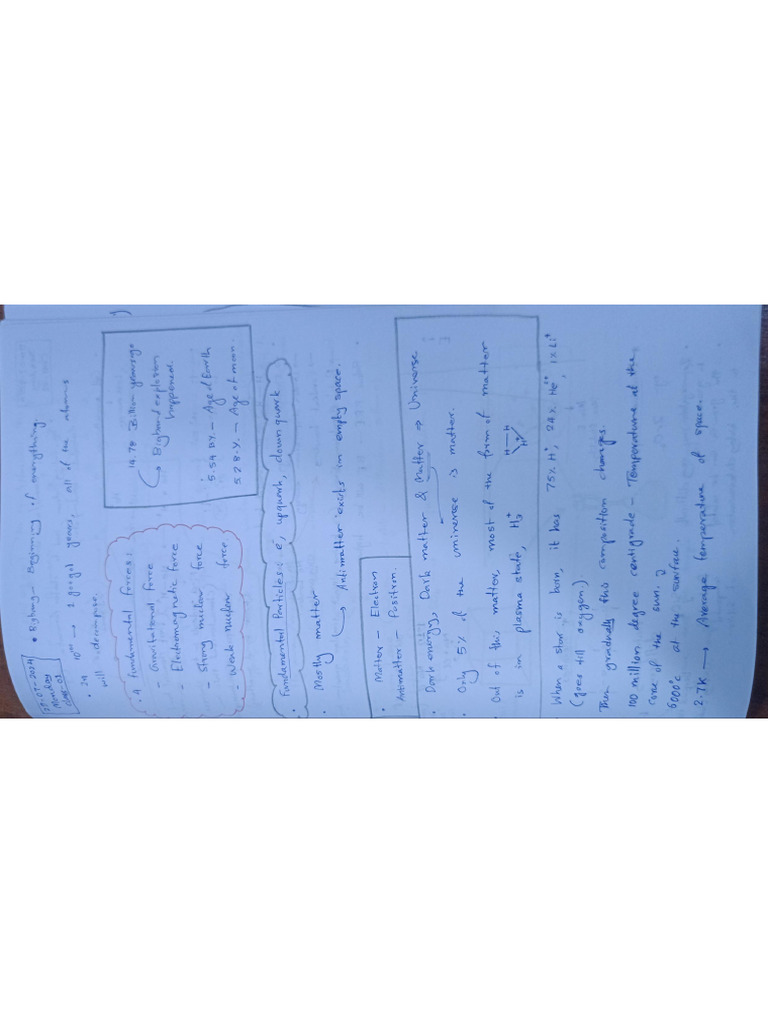 Monday
• Bigbang – Beginning of everything.
• In 10¹⁰⁰ → 1 googol years, all of the atoms
will decompose.
• 4 fundamental forces:
- Gravitational force
- Electromagnetic force
- Strong nuclear force
- Weak nuclear force
14.78 Billion years ago
↳ Bigband explosion
happened.
5.54 B.Y. – Age of Earth
5.28.Y. – Age of moon
• Fundamental Particles: e⁻, upquark, down quark
• Mostly matter
↳ Antimatter exists in empty space.
• Matter – Electron
Antimatter – Positron.
• Dark energy, Dark matter & Matter ⇒ Universe
• Only 5% of the universe is matter.
Out of this matter, most of the form of matter
is in plasma state, H₃⁺
H — H
H⁺
• When a star is born, it has 75% H⁺, 24% He, 1% Li⁺
(goes till oxygen)
Then gradually this composition changes.
100 million degree centigrade – Temperature at the
core of the sun.
6000°C at the surface.
2.7K → Average temperature of space.